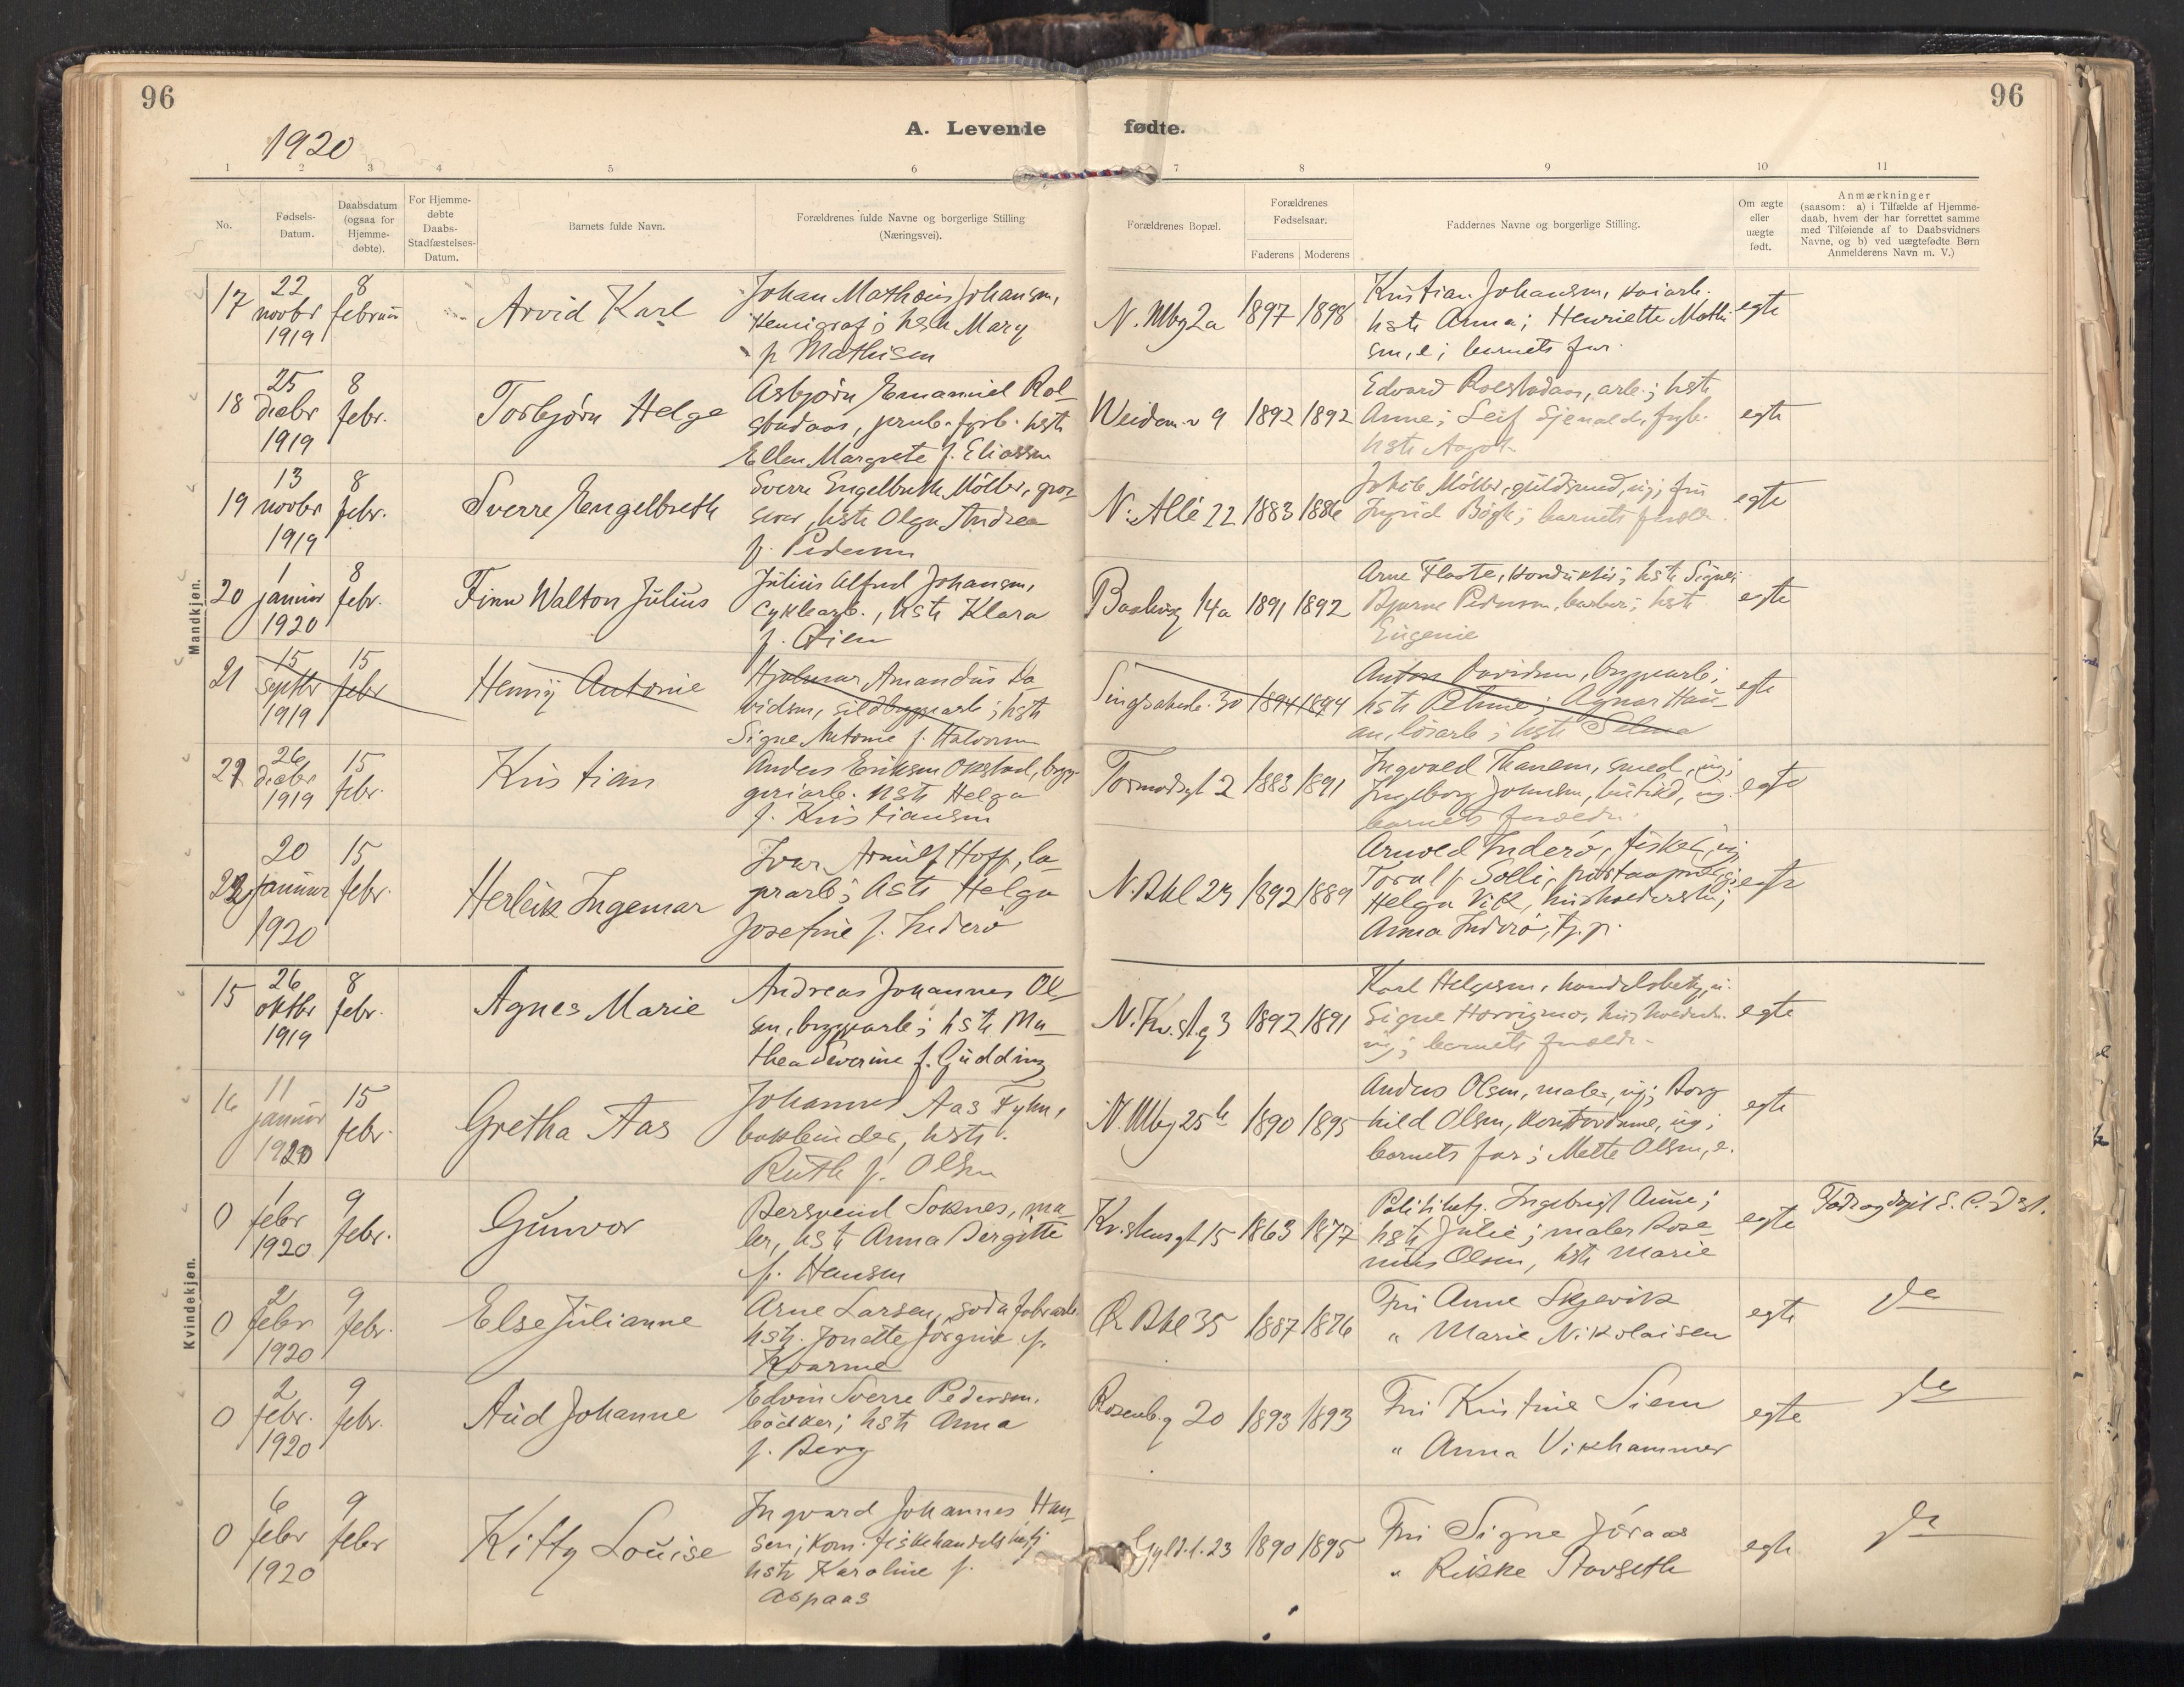 96
96
1920
A. Levende fødte.
1 2 3 4 5 6 7 8 9 10 11
No.
Fødsels-
Datum.
Daabsdatum
(ogsaa for
Hjemme-
døbte).
For Hjemme-
døbte
Daabs-
Stadfæstelses-
Datum.
Barnets fulde Navn.
Forældrenes fulde Navne og borgerlige Stilling
(Næringsvei).
Forældrenes Bopæl.
Forældrenes
Fødselsaar.
Faderens Moderens
Faddernes Navne og borgerlige Stilling.
Om ægte
eller
uægte
født.
Anmærkninger
(saasom: a) i Tilfælde af Hjemme-
daab, hvem der har forrettet samme
med Tilføiende af to Daabsvidners
Navne, og b) ved uægtefødte Børn
Anmelderens Navn m. V.)
Mandkjøn.
17
22
novbr
1919
8
februar
Arvid Karl
Johan Mathæus Johansen,
kemigraf; hstr Mary
f. Mathisen
N. Mbg 2a
1897
1898
Kristian Johansen,
hstr Anna; Henriette Mathi
sen, e; barnets far.
egte
18
25
decbr
1919
8
febr.
Torbjørn Helge
Asbjørn Emanuel Rol-
stadaas, hstr
Ellen Margrete f. Eliassen
Weidem.v 9
1892
1892
Edvard Rolstadaas, arb.; hstr
Anne; Leif
hstr
egte
19
13
novbr
1919
8
febr.
Sverre Engelbreth
Sverre Engelbreth Möller, gros-
serer, hstr Olga Andrea
f. Pedersen
N. Allé 22
1883
1886
Möller, guldsmed, ug; fru
Ingrid barnets foreldr.
egte
20
1
januar
1920
8
febr.
Finn Walton Julius
Julius Alfred Johansen,
cyklearb., hstr Klara
f. Øien
14a
1891
1892
Arne Flaate, konduktör; hstr Signe;
Bjarne Pedersen, barber; hstr
Eugenie
egte
21
15
septbr
1919
15
febr
Henny Antonie
Hjalmar Amandus Da-
vidsen, sildbryggearb; hstr
Signe Antonie f. Halvorsen
Singsakerb. 30
1894
1894
Anton Davidsen, bryggearb;
hstr Agnar Hau-
an, hstr Selma
egte
21
26
decbr
1919
15
febr.
Kristian
Anders Eriksen Okstad, bryg-
geriarb. hstr Helga
f. Kristiansen
Tormodsgt 2
1883
1891
Ingvald Thanem, smed, ug;
Ingeborg Johnsen, ug.
barnets foreldr.
egte
22
20
januar
1920
15
febr.
Herleik Ingemar
Ivar Arnulf Hoff, la-
gerarb; hstr Helga
Josefine f. Inderö
N. Bkl 23
1892
1889
Arnold Inderö, fisker, ug;
Toralf Solli,
Helga Vik, husholderske;
Anna Inderö, tj.p.
egte
Kvindekjøn.
15
26
oktbr
1919
8
febr.
Agnes Marie
Andreas Johannes Ol-
sen, bryggearb; hstr Ma-
thea Severine f. Gudding
N. Kv.st.g 3
1892
1891
Karl Helgesen, handelsbetj, u.
Signe
ug; barnets foreldr.
egte
16
11
januar
1920
15
febr.
Gretha Aas
Johannes Aas Fyhn,
bokbinder, hstr.
Ruth f. Olsen
N. Mbg 25b
1890
1895
Anders Olsen, maler, ug; Borg
hild Olsen, kontordame, ug;
barnets far; Mette Olsen, e.
egte
0
1
febr
1920
9
febr.
Gunvor
Bersvend Soknes, ma-
ler, hstr Anna Bergitte
f. Hansen
15
1863
1877
Politibetj. Ingebrigt Aune;
hstr Julie; maler Rose-
nius Olsen, hstr Marie
egte
0
2
febr
1920
9
febr.
Else Julianne
Arne Larsen, sodafabrarb.
hstr. Jonette Jörgine f.
Kvarme
Ø. Bkl 35
1887
1876
Fru Anne Skjevik
" Marie Nikolaisen
egte
do
0
2
febr.
1920
9
febr.
Aud Johanne
Edvin Sverre Pedersen.
bödker; hstr Anna
f. Berg
Rosenb.g 20
1893
1893
Fru Kristine Siem
" Anna Vikhammer
egte
do
0
6
febr
1920
9
febr
Kitty Louise
Ingvard Johannes Han-
sen; kom. fiskehandelsbetj
hstr Karoline f.
Aspaas
Gyld.l. 23
1890
1895
Fru Signe Jöraas
" Rikke Stavseth
egte
do